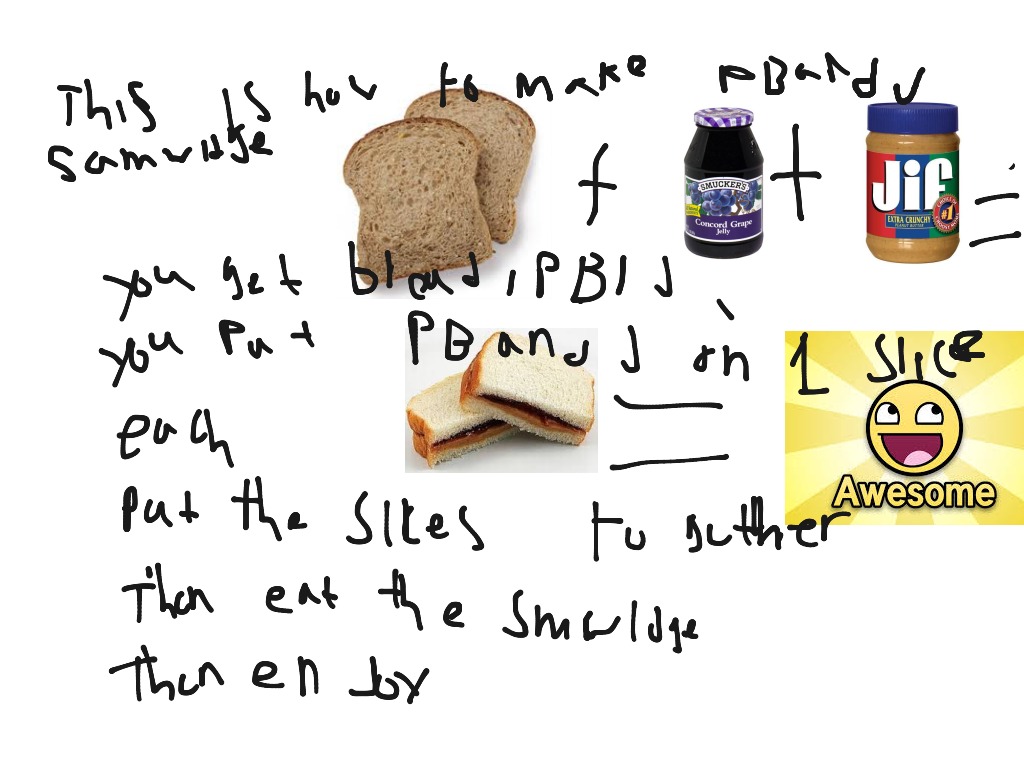 This is how to make PBandJ
Samwidge
+ +
SMUCKER'S
Concord Grape
Jelly
Jif
EXTRA CRUNCHY
PEANUT BUTTER
#1
=
you get blead, PB, J
you Put PB and J on 1 Slice
each
=
Awesome
Put the Slices to guther
Then eat the Smwidge
Then en Joy